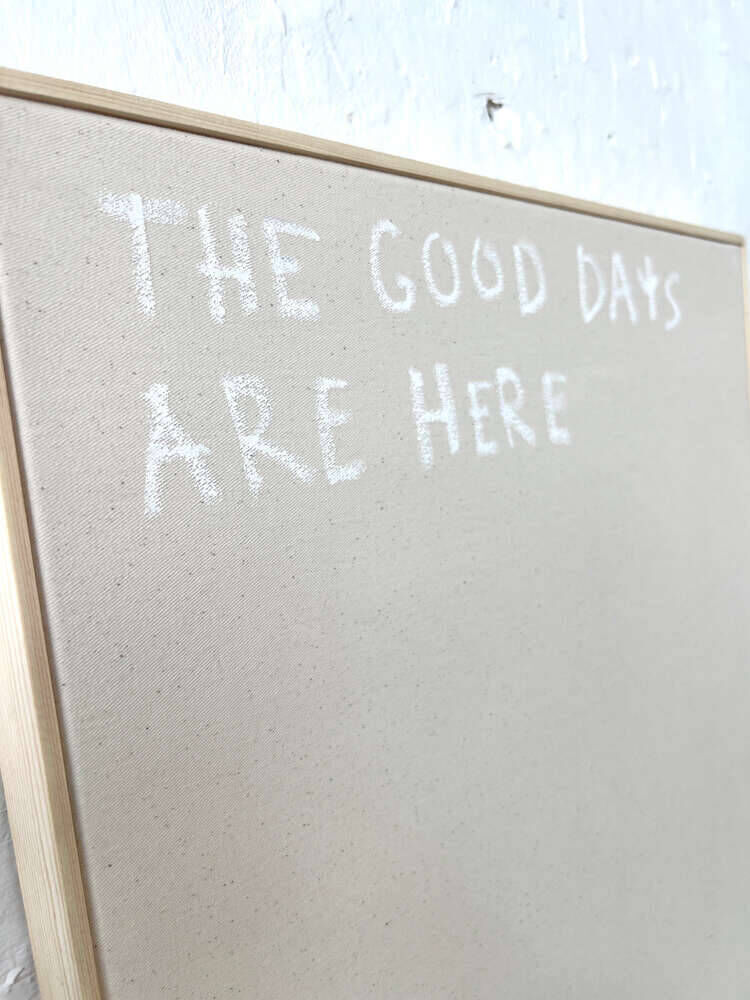 THE GOOD DAYS
ARE HERE